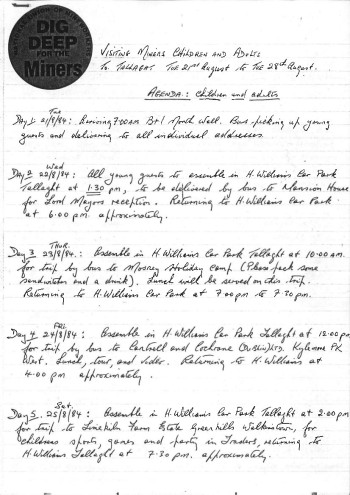 DIG
DEEP
FOR THE
Miners
VISITING MINERS CHILDREN AND ADULTS
TO TALLAGHT TUE 21ST August to TUE 28th August.
AGENDA: Children and adults
Tue
Day 1 21/8/84: Arriving 7.00AM B+I North Wall. Bus picking up young
guests and delivering to all individual addresses.
Wed
Day 2 22/8/84: All young guests to assemble in H. Williams Car Park
Tallaght at 1:30 pm, to be delivered by bus to Mansion House
for Lord Mayors reception. Returning to H. Williams Car Park
at 6.00 pm approximately.
Thur.
Day 3 23/8/84: Assemble in H. Williams Car Park Tallaght at 10.00 am.
for trip by bus to Mosney Holiday Camp (Please pack some
sandwiches and a drink). Lunch will be served on this trip.
Returning to H. Williams Car Park at 7.00 pm to 7.30 pm.
Fri.
Day 4 24/8/84: Assemble in H. Williams Car Park Tallaght at 12.00 pm
for trip by bus to Cantrell and Cochrane (Dublin) Ltd. Kylemore PK
West. Lunch, tour, and video. Returning to H. Williams at
4.00 pm approximately.
Sat.
Day 5. 25/8/84: Assemble in H. Williams Car Park Tallaght at 2.00 pm
for trip to Limekiln Farm Estate Greenhills Walkinstown, for
childrens sports, games and party in Traders, returning to
H. Williams Tallaght at 7.30 pm. approximately.